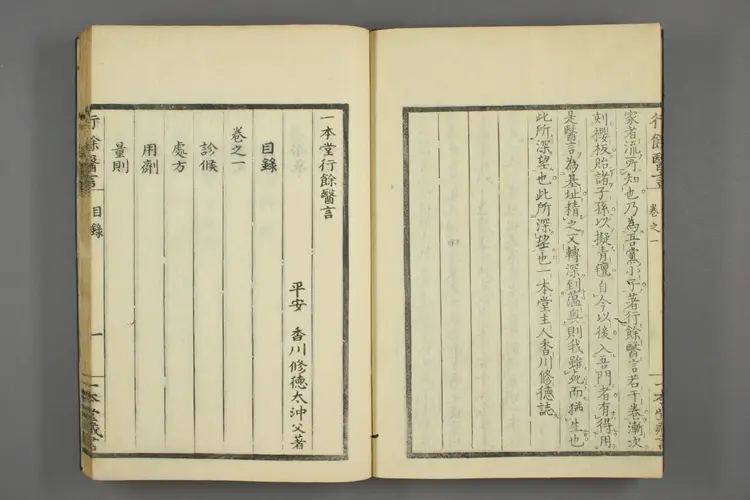 行餘醫言
卷之一
家者流所知也乃為吾黨小子著行餘醫言若干卷漸次
刻櫻板貽諸子孫以擬青氊自今以後入吾門者有得用
是醫言為基址精之又轉深到蘊奧則我雖死而猶生也
此所深望也此所深望也一本堂主人香川修德誌
一本堂行餘醫言
平安 香川修德太沖父著
目錄
卷之一
診候
處方
用劑
量則
行餘醫言
目錄
一
一本堂藏